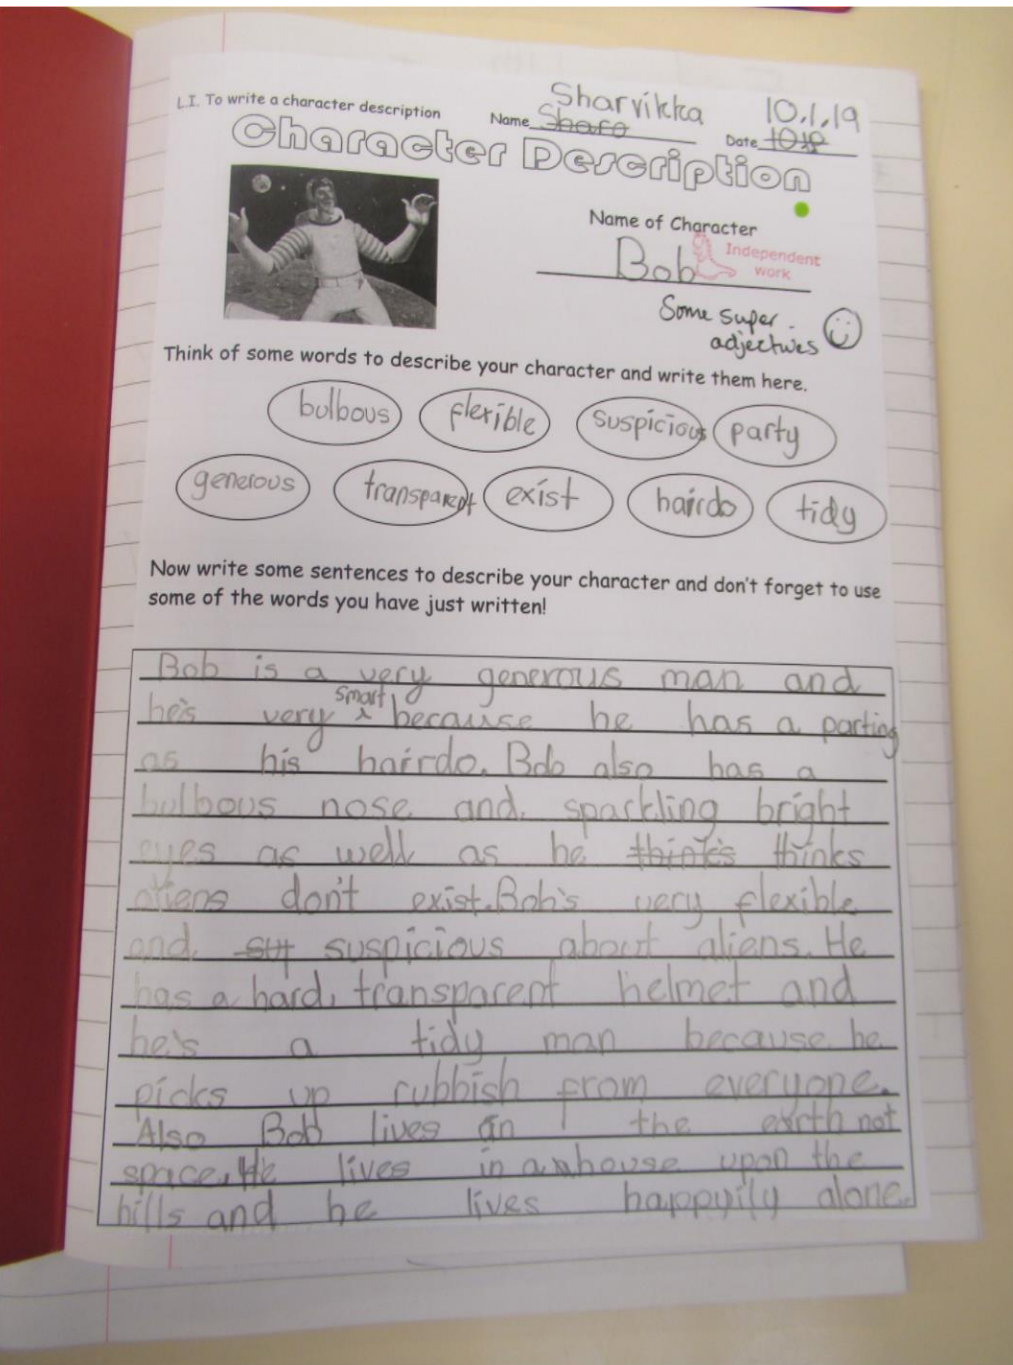 L.I. To write a character description
Name Sharvikka
Date 10.1.19
Character Description
Name of Character
Bob
Independent
work
Some super
adjectives
Think of some words to describe your character and write them here.
bulbous flexible suspicious party
generous transparent exist hairdo tidy
Now write some sentences to describe your character and don't forget to use
some of the words you have just written!
Bob is a very generous man and
he's very smart, because he has a parting
as his hairdo. Bob also has a
bulbous nose and, sparkling bright
eyes as well as he thinks thinks
aliens don't exist. Bob's very flexible
and, sus suspicious about aliens. He
has a hard, transparent helmet and
he's a tidy man because he
picks up rubbish from everyone.
Also Bob lives in the earth not
space. He lives in a house upon the
hills and he lives happyily alone.